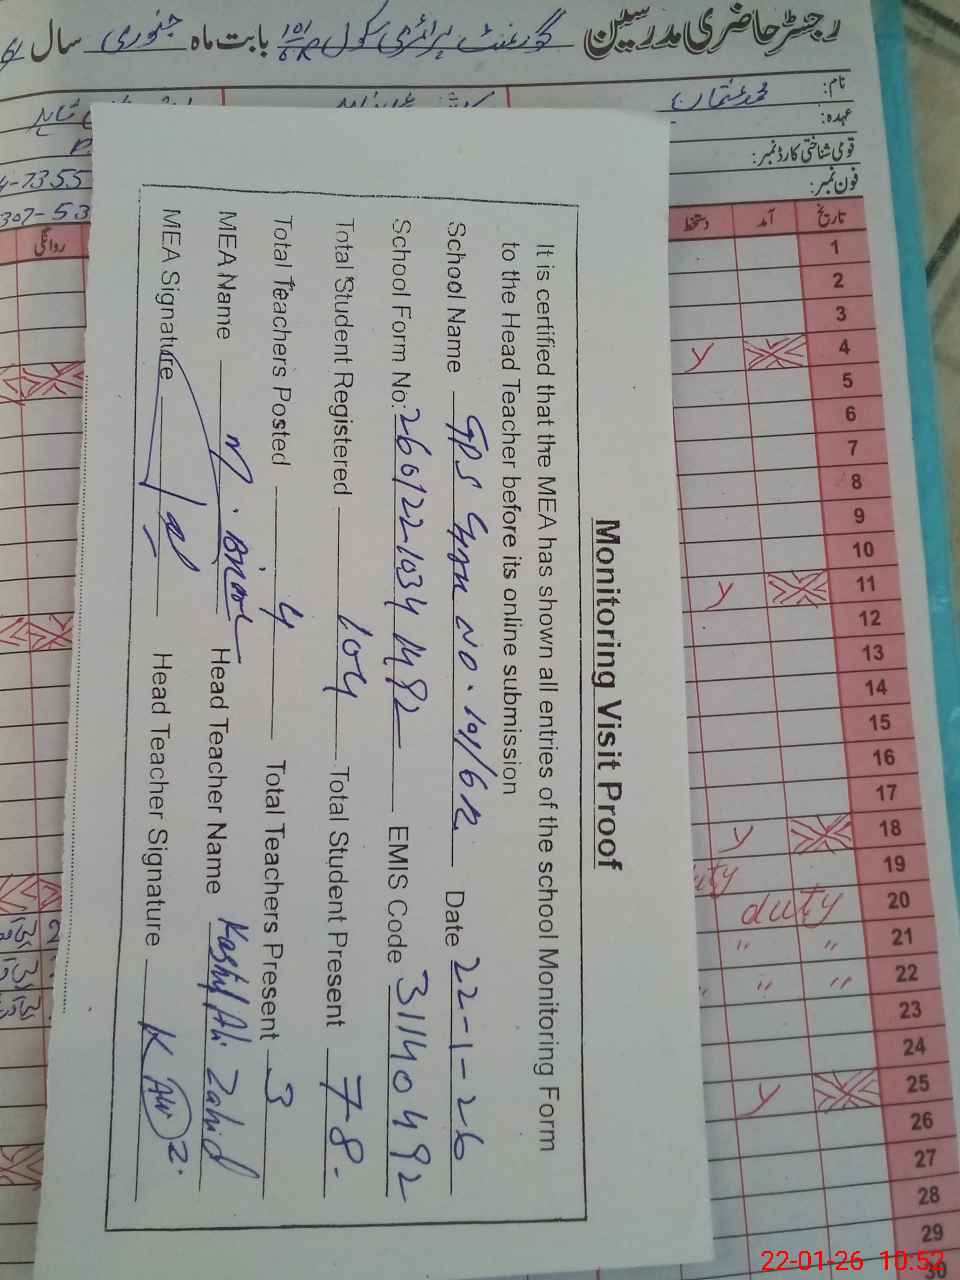 رجسٹر حاضری مدرسین گورنمنٹ پرائمری سکول 101/6R بابت ماہ جنوری سال
نام: محمد عثمان
عہدہ:
قومی شناختی کارڈ نمبر:
فون نمبر:
4-7355
307-53
تاریخ آمد دستخط
روانگی
1
2
3
4 y
5
6
7
8
9
10
11 y
12
13
14
15
16
17
18 y
19
20 duty
21 " "
22 " "
23
24
25 y
26
27
28
29
30
Monitoring Visit Proof
It is certified that the MEA has shown all entries of the school Monitoring Form
to the Head Teacher before its online submission
School Name GPS Chak NO. 101/6R Date 22-1-26
School Form No: 260122-1034 1492 EMIS Code 31140492
Total Student Registered 104 Total Student Present 78-
Total Teachers Posted 4 Total Teachers Present 3
MEA Name Head Teacher Name Kashif Ali Zahid
MEA Signature Head Teacher Signature
22-01-26 10:52